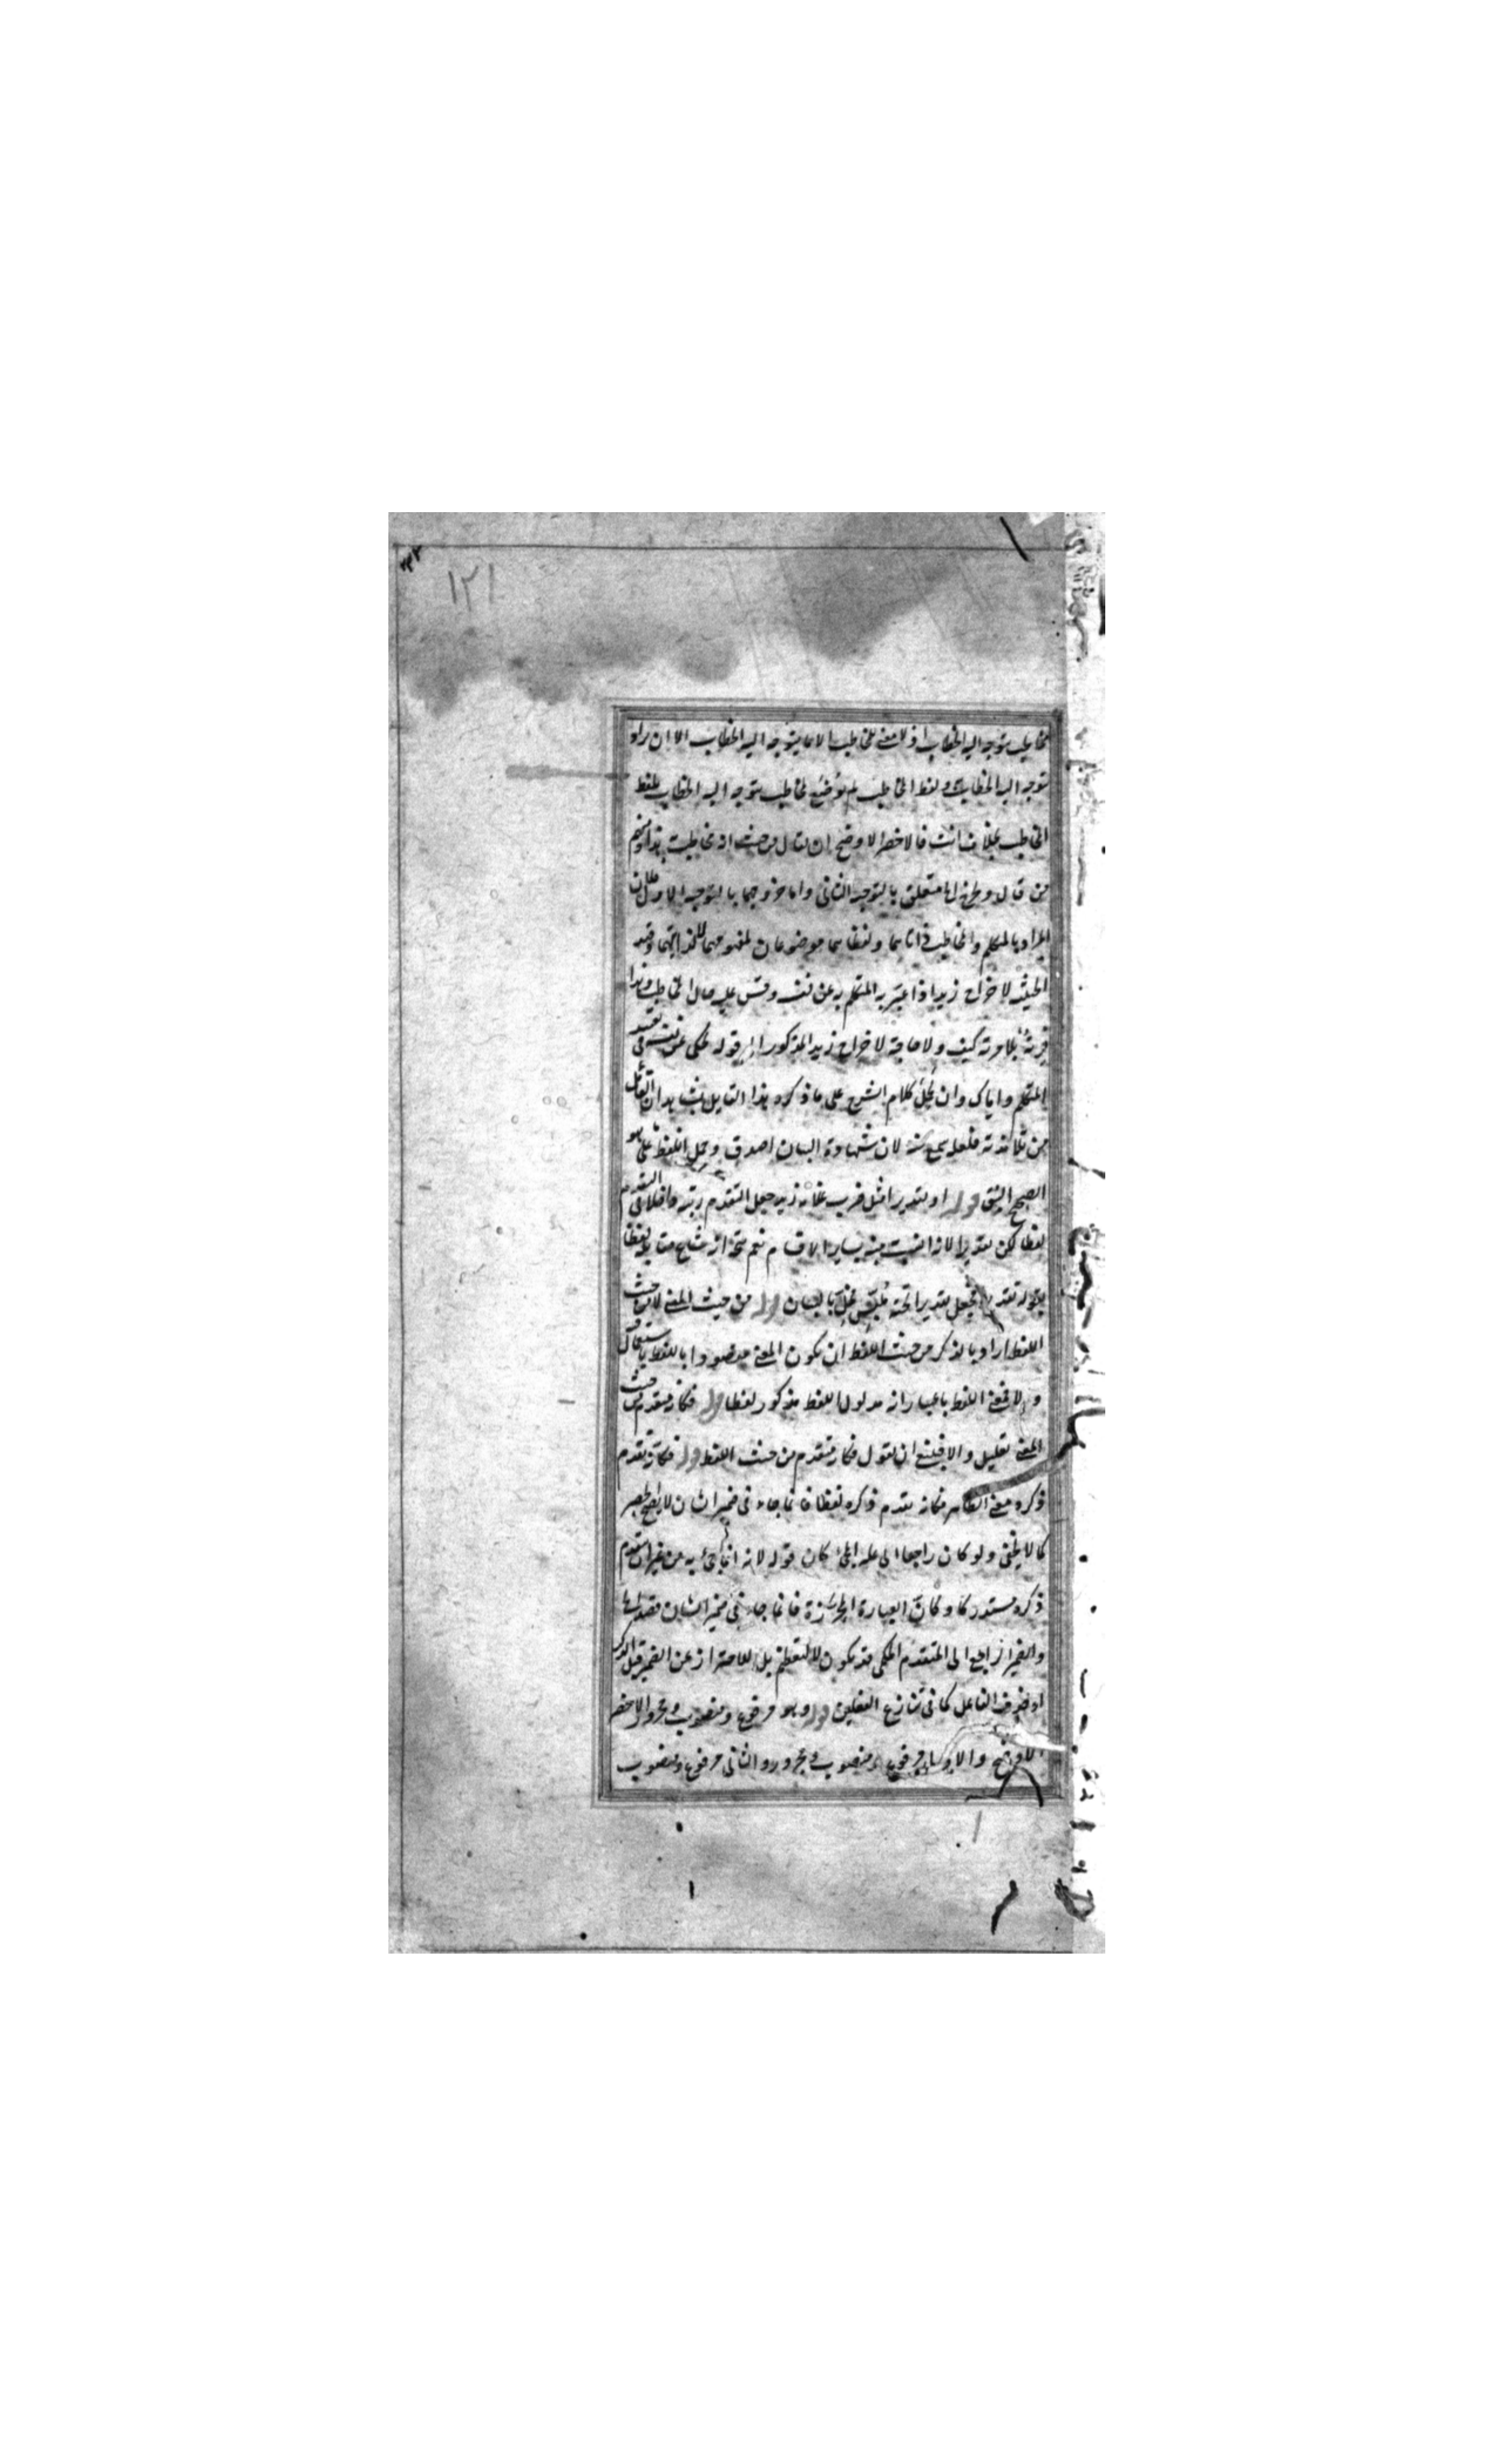 ١٢١
مخاطب يتوجه اليه الخطاب اذ لا معنى للمخاطب الا ما يتوجه اليه الخطاب الا ان يراد
يتوجه اليه الخطاب ولفظ المخاطب لم يوضع لمخاطب يتوجه اليه الخطاب بلفظ
المخاطب بخلاف انت فالاخصر الاوضح ان يقال من حيث انه مخاطب
من قال ولخ متعلق بالتوجيه الثانى واما خروجها بالتوجيه الاول فلان
المراد بالمتكلم والمخاطب ذاتاهما ولفظاهما موضوعان لمفهومهما لا لذاتيهما وقيد
الحيثية لاخراج زيد اذا عبّر به المتكلم به عن نفسه وقس عليه حال المخاطب وهذا
فرية بلا مرية كيف ولا حاجة لاخراج زيد المذكور الى قوله يحكى عن نفسه فى تفسير
المتكلم واياك وان تحمل كلام الشرح على ما ذكره هذا القايل بشهادة ان القائل
من تلامذته فلعله سمع منه لان شهادة البيان اصدق وحمل اللفظ على ما هو
الصحيح اليق قوله او بتقديرا مثل ضرب غلامه زيد جعل التقدم رتبة داخلا فى التقدم
لفظا لكن تقديرا لانه انسب من ساير الاقسام نعم يتجه انه مقابلة لفظا
بقوله تقديرا بالبيان قوله من حيث المعنى لا من حيث
اللفظ اراد بالذكر من حيث اللفظ ان يكون المعنى مقصودا باللفظ باستعماله فيه
والا فمعنى اللفظ باعتبار انه مدلول اللفظ مذكور لفظا قوله فكانه متقدم من حيث
المعنى تعليل والا فينبغى ان يقول فكانه متقدم من حيث اللفظ قوله فكانه تقدم
ذكره معنى الظاهر فكانه تقدم ذكره لفظا فانما جاء فى ضمير الشان لا يصح الحصر
كما لا يخفى ولو كان راجعا الى علة المجئ كان قوله لانه انما جئ به من غير ان يتقدم
ذكره مستدركا وكان العبارة فانما جاء فى ضمير الشان قصدا
والضمير الراجع الى المتقدم الحكمى قد يكون لا للتعظيم بل للاحتراز عن الضمير قبل الذكر
او حذف الفاعل كما فى تنازع الفعلين قوله وهو مرفوع ومنصوب ومجرور الاخصر
الاوضح والاول مرفوع ومنصوب ومجرور والثانى مرفوع ومنصوب